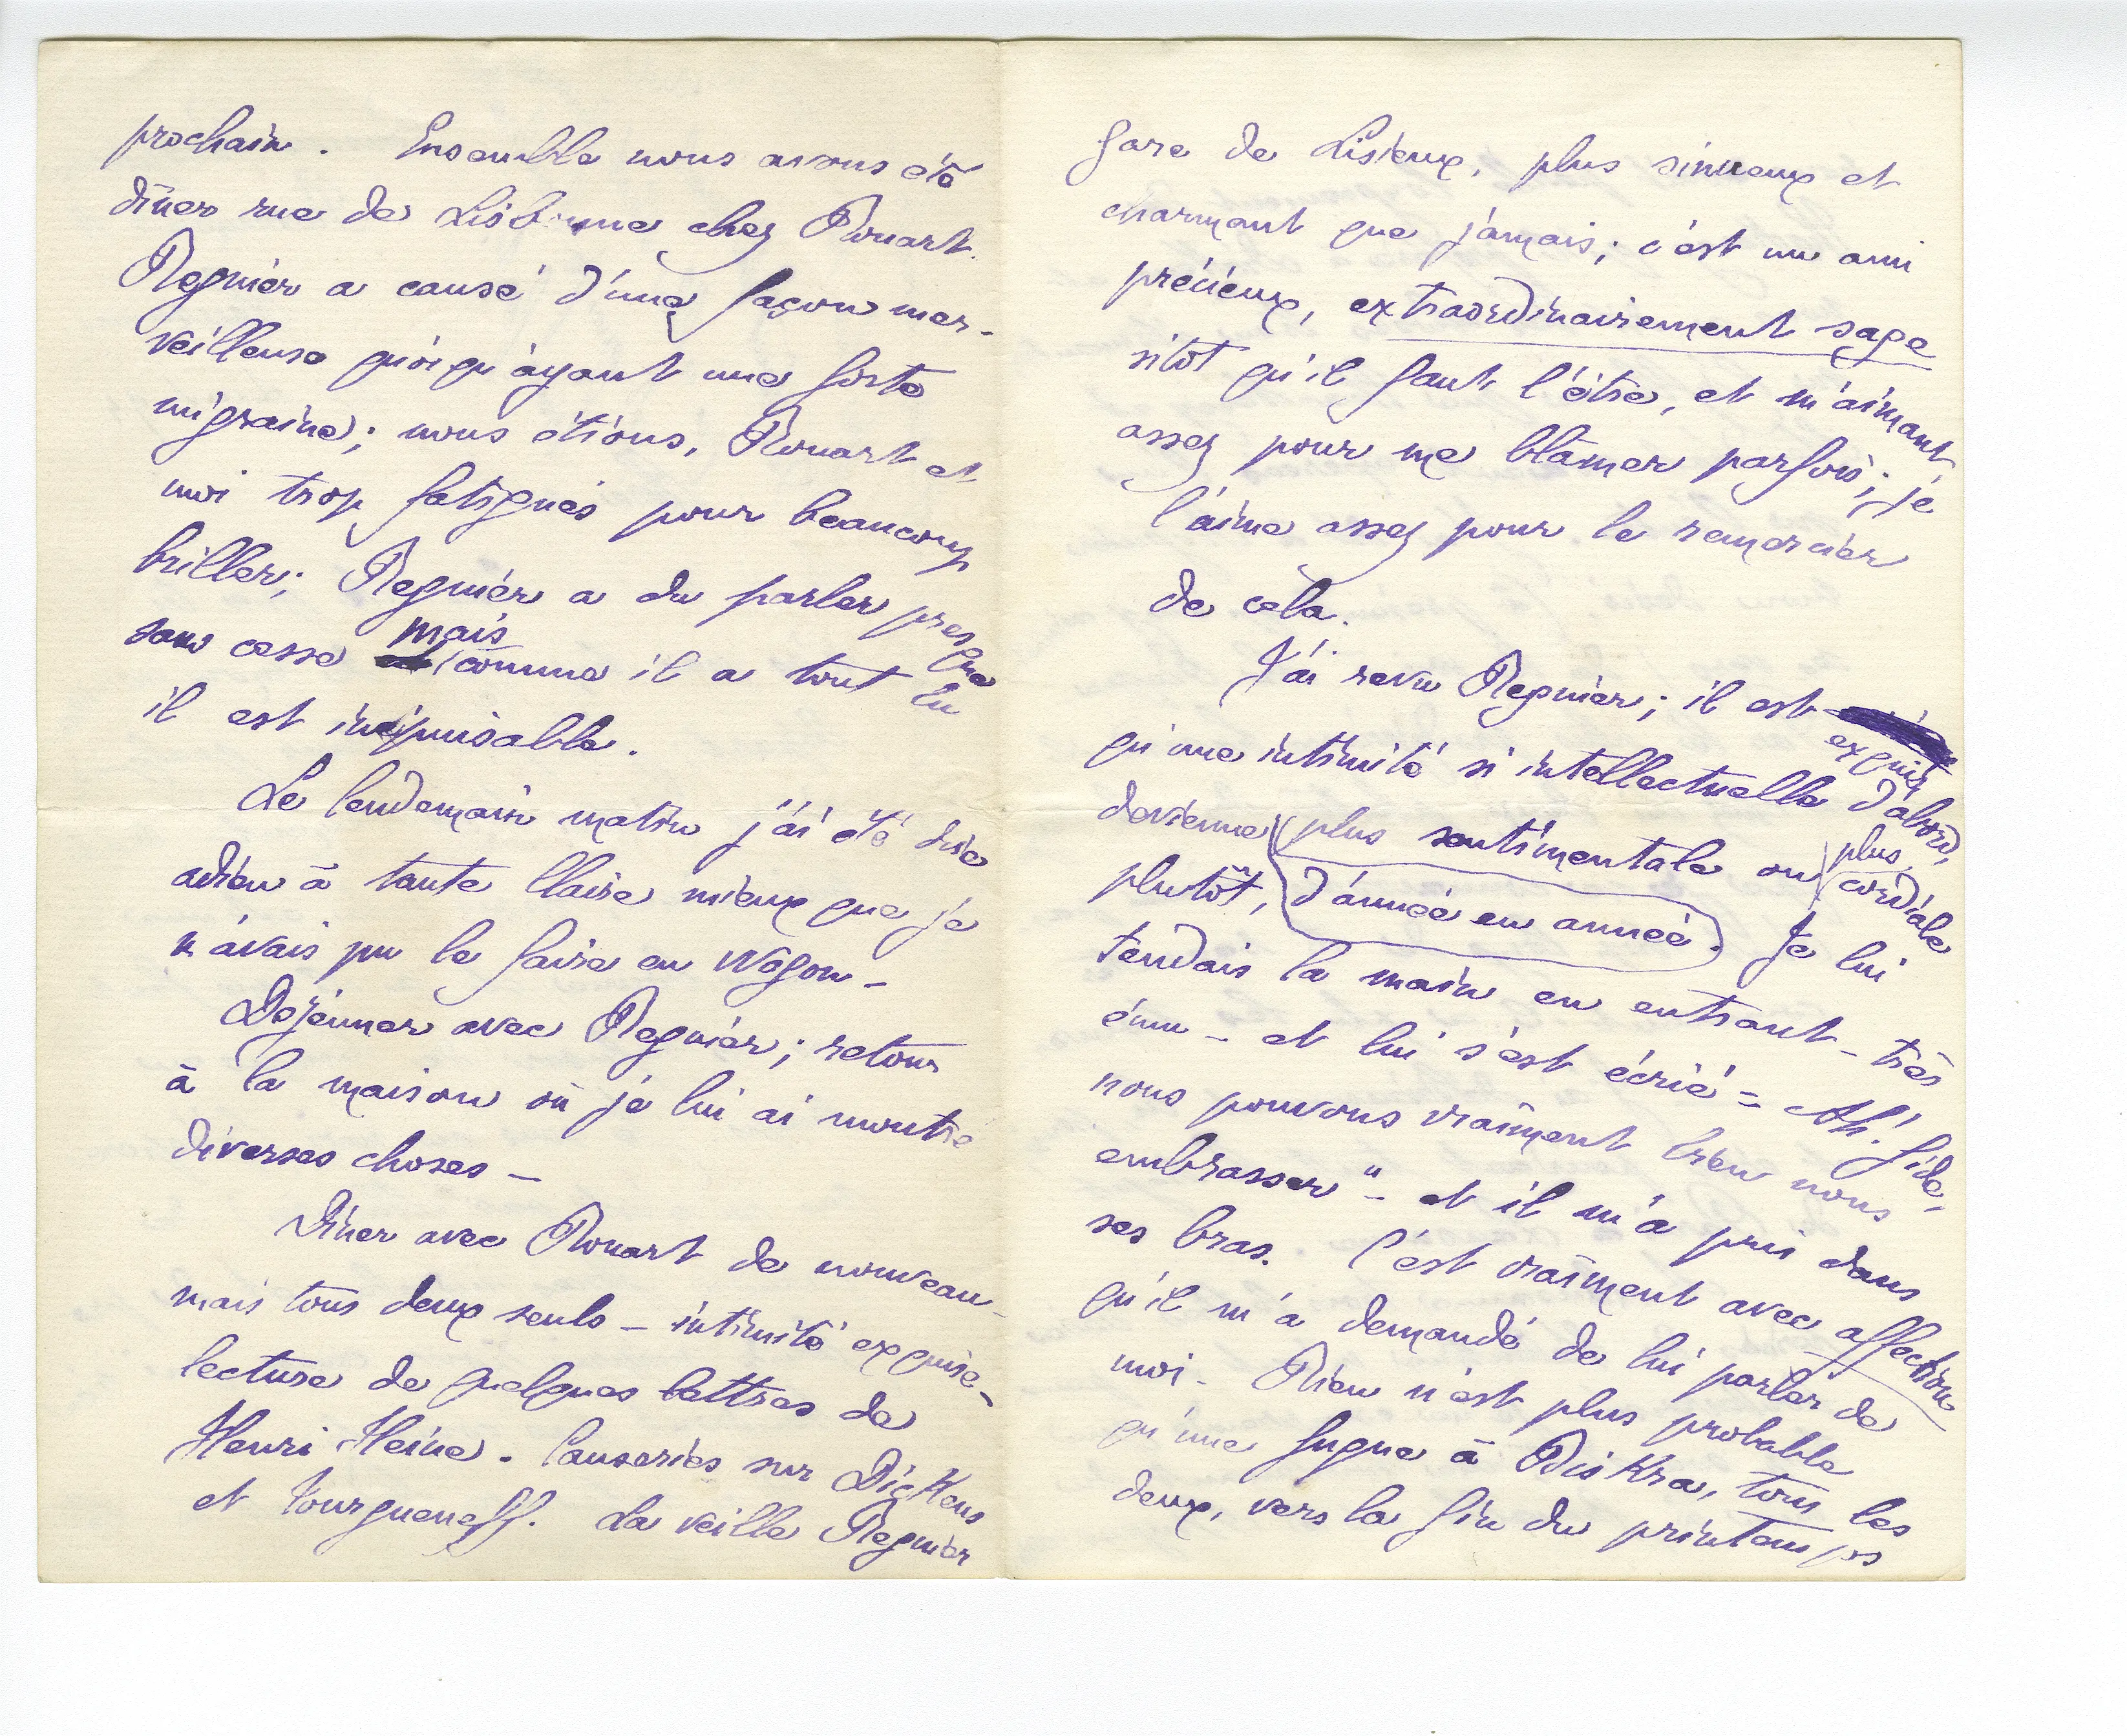 prochain. Ensemble nous avons été
dîner rue de Lisbonne chez Rouart.
Regnier a causé d'une façon mer-
veilleuse quoiqu'ayant une forte
migraine; nous étions, Rouart et
moi trop fatigués pour beaucoup
briller; Regnier a du parler presque
sans cesse mais comme il a tout lu
il est inépuisable.
Le lendemain matin j'ai été dire
adieu à tante Claire mieux que je
n'avais pu le faire en wagon –
Dejeuner avec Regnier; retour
à la maison où je lui ai montré
diverses choses –
Dîner avec Rouart de nouveau –
mais tous deux seuls – intimité exquise –
lecture de quelques lettres de
Henri Heine. Causeries sur Dickens
et Tourgueneff. La veille Regnier
gare de Lisieux, plus sinueux et
charmant que jamais; c'est un ami
précieux, extraordinairement sage
sitôt qu'il faut l'être, et m'aimant
assez pour me blâmer parfois; je
l'aime assez pour le remercier
de cela.
J'ai revu Regnier; il est
exquis
qu'une intimité si intellectuelle d'abord,
devienne plus sentimentale ou plus cordiale
plutôt, d'année en année. Je lui
tendais la main en entrant – très
ému – et lui s'est écrié = Ah! Gide,
nous pouvons vraiment bien nous
embrasser" – et il m'a pris dans
ses bras. C'est vraiment avec affection
qu'il m'a demandé de lui parler de
moi – Rien n'est plus probable
qu'une fugue à Biskra, tous les
deux, vers la fin du printemps